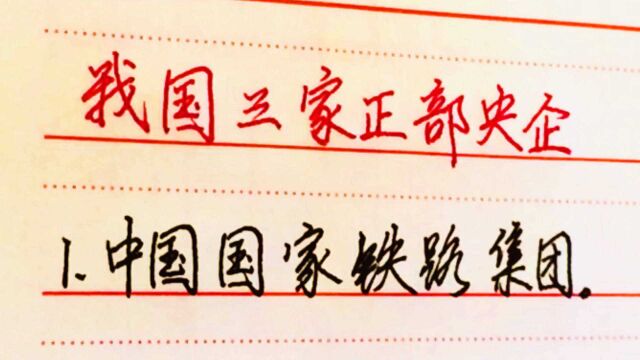 我国三家正部央企
1.中国国家铁路集团.